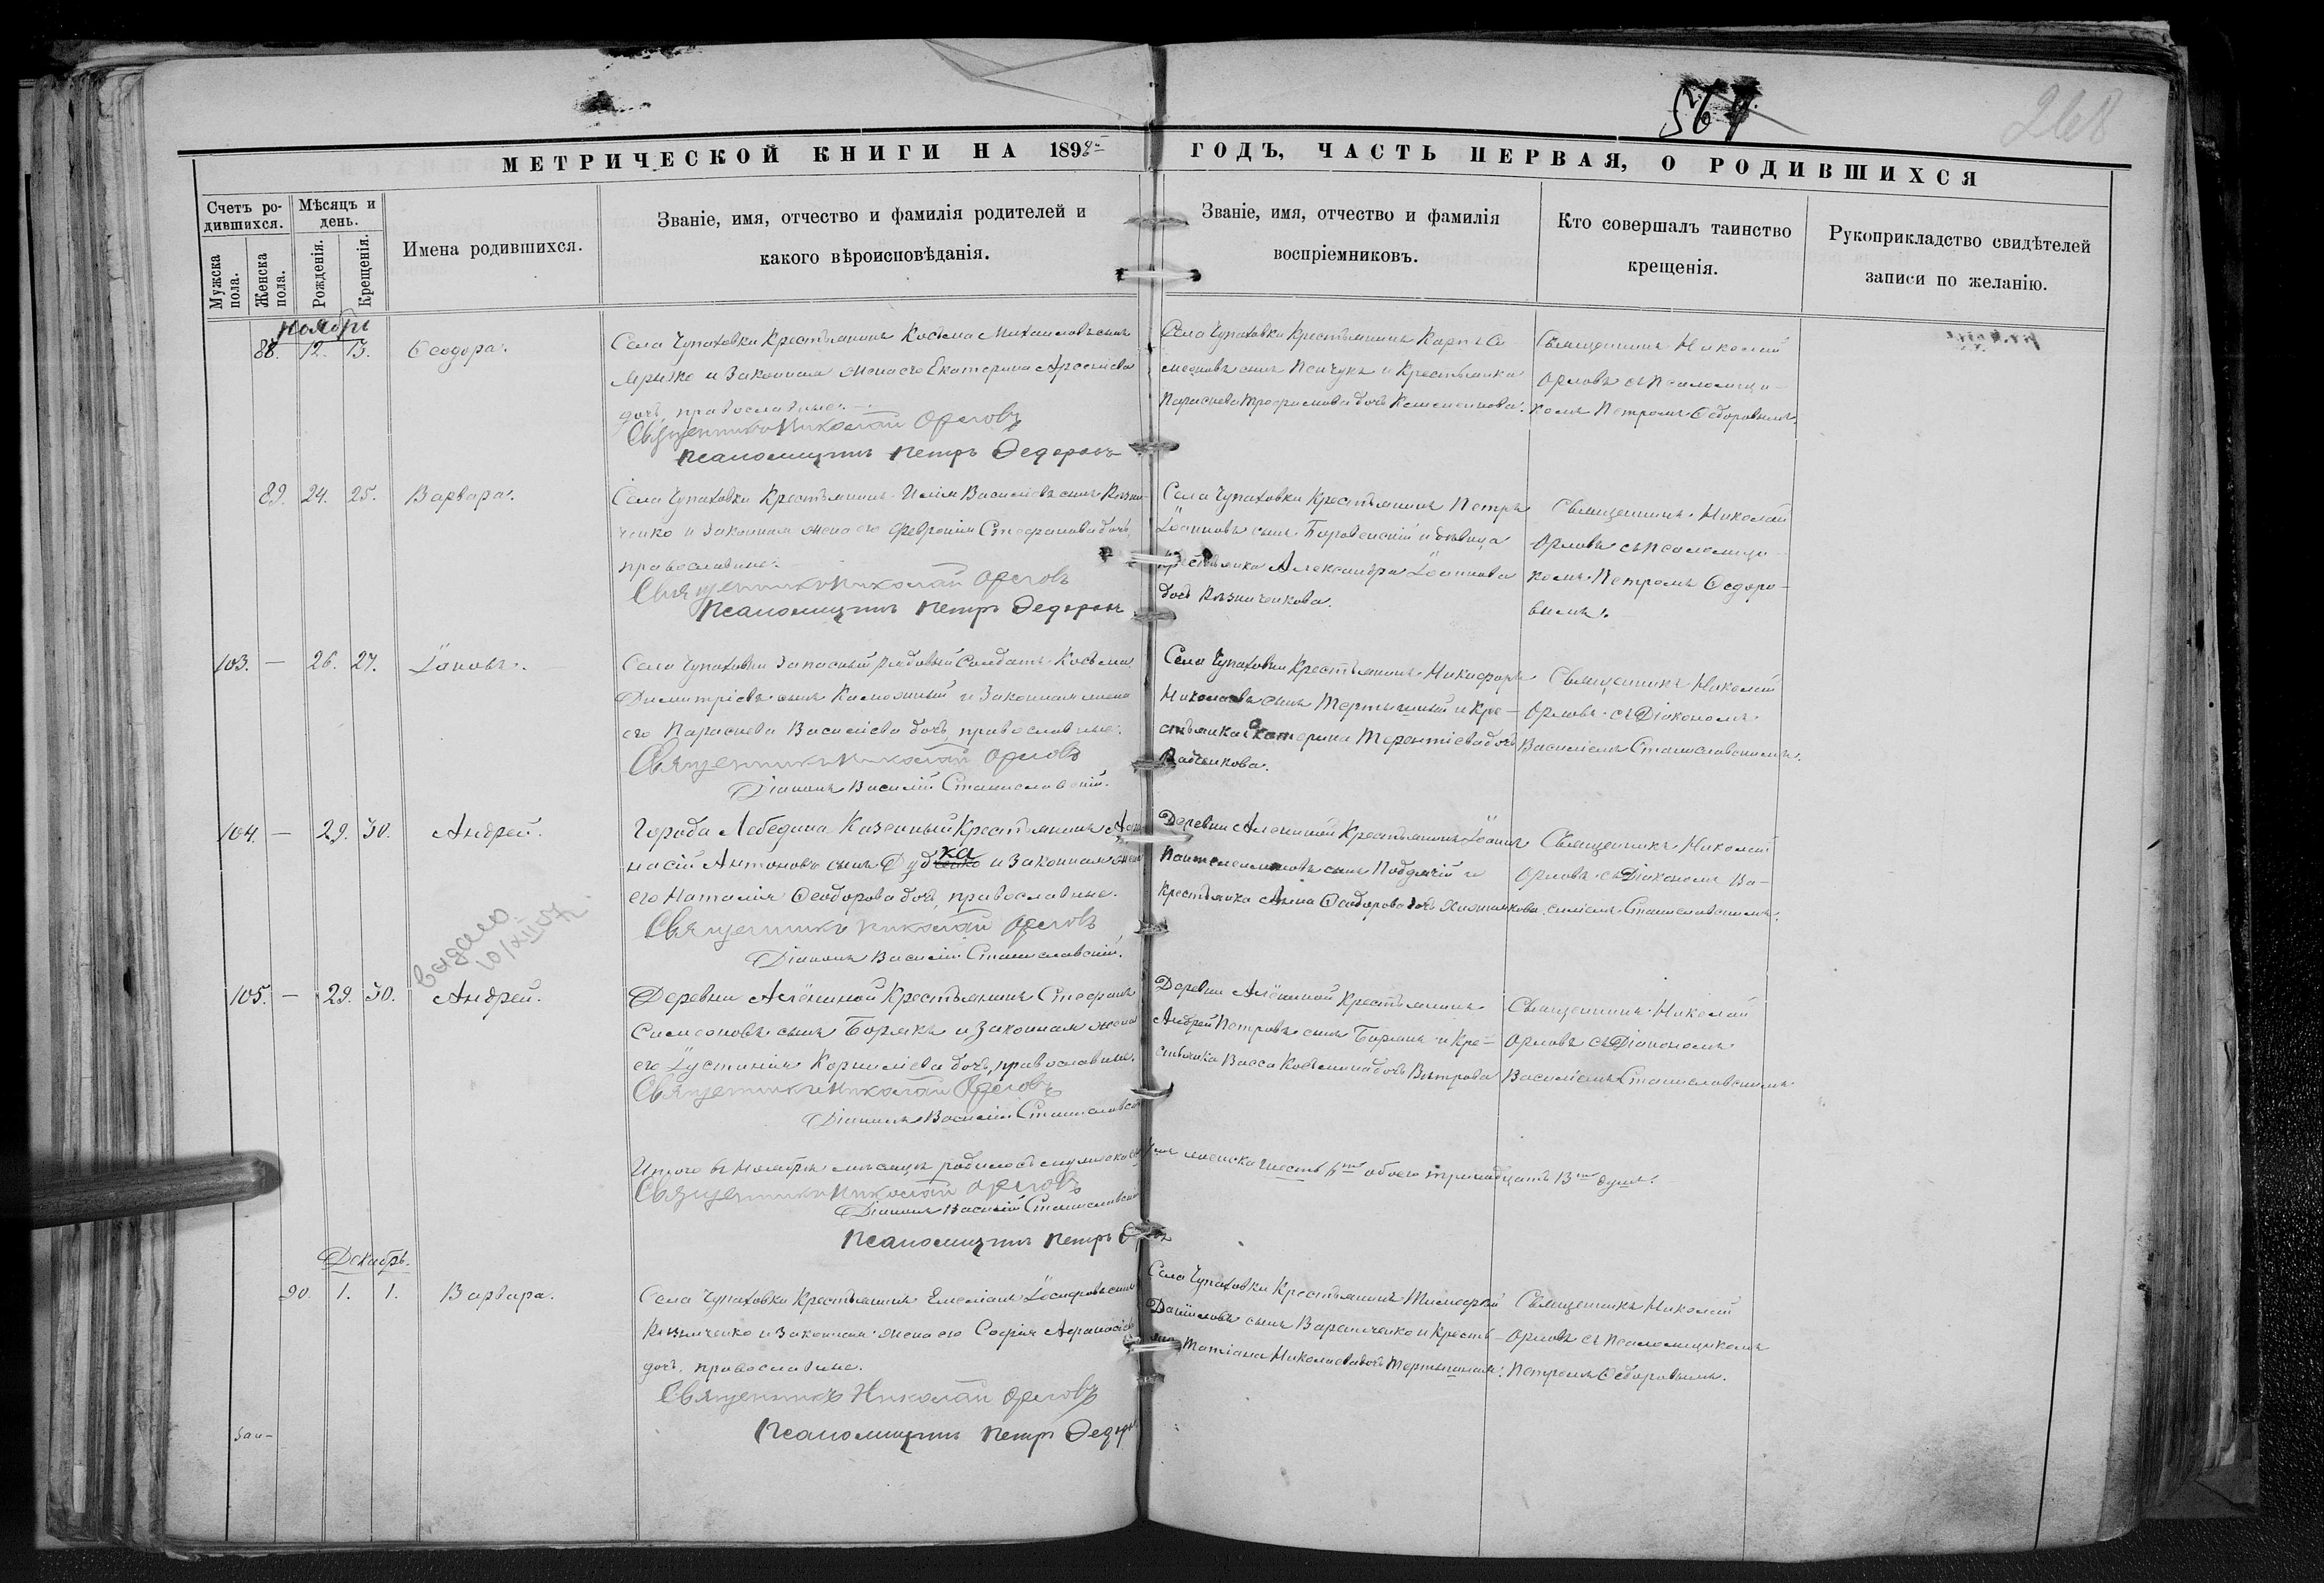 567
268
МЕТРИЧЕСКОЙ КНИГИ НА 1898й ГОДЪ, ЧАСТЬ ПЕРВАЯ, О РОДИВШИХСЯ
Счетъ ро-
дившихся.
Мужска
пола.
Женска
пола.
Мѣсяцъ и
день.
Рожденія.
Крещенія.
Имена родившихся.
Званіе, имя, отчество и фамилія родителей и
какого вѣроисповѣданія.
Званіе, имя, отчество и фамилія
воспріемниковъ.
Кто совершалъ таинство
крещенія.
Рукоприкладство свидѣтелей
записи по желанію.
Ноябрь
88. 12. 13. Ѳеодора.
Села Чупаховки Крестьянинъ Косьма Михаиловъ сынъ
и Законная жена его Екатерина Арсеніева
дочь, православные.
Священникъ Николай Орловъ
Псаломщикъ Петръ Ѳедоровъ
Села Чупаховки Крестьянинъ Карпъ Си-
меоновъ сынъ и Крестьянка
Параскева Трофимова дочь
Священникъ Николай
Орловъ съ Псаломщи-
комъ Петромъ Ѳедоровымъ.
89. 24. 25. Варвара.
Села Чупаховки Крестьянинъ Василіевъ сынъ Кузьми-
ченко и Законная жена его Февронія Стефанова дочь,
православные.
Священникъ Николай Орловъ
Псаломщикъ Петръ Ѳедоровъ
Села Чупаховки Крестьянинъ Петръ
Іоанновъ сынъ Боровенскій и дѣвица
Крестьянка Александра Іоаннова
дочь
Священникъ Николай
Орловъ съ Псаломщи-
комъ Петромъ Ѳедоро-
вымъ.
103. — 26. 27. Іаковъ.
Села Чупаховки Запасный рядовый Солдатъ Косьма
Димитріевъ сынъ и Законная жена
его Параскева Василіева дочь, православные.
Священникъ Николай Орловъ
Діаконъ Василій Станиславскій.
Села Чупаховки Крестьянинъ Никифоръ
Николаевъ сынъ Тертышный и Кре-
стьянка Екатерина Терентіева дочь
Священникъ Николай
Орловъ съ Діакономъ
Василіемъ Станиславскимъ.
104. — 29. 30. Андрей.
Города Лебедина Казенный Крестьянинъ Аѳа-
насій Антоновъ сынъ Дудка и Законная жена
его Наталія Ѳеодорова дочь, православные.
Священникъ Николай Орловъ
Діаконъ Василій Станиславскій.
Деревни Алениной Крестьянинъ Іоаннъ
Пантелеимоновъ сынъ и
Крестьянка Анна Ѳеодорова дочь
Священникъ Николай
Орловъ съ Діакономъ Ва-
силіемъ Станиславскимъ.
выдано
10/XII 07
105. — 29. 30. Андрей.
Деревни Алёниной Крестьянинъ Стефанъ
Симеоновъ сынъ Борякъ и Законная жена
его Іустинія Корниліева дочь, православные.
Священникъ Николай Орловъ
Діаконъ Василій Станиславскій
Деревни Алёниной Крестьянинъ
Андрей Петровъ сынъ Борякъ и Кре-
стьянка Васса Косьмина дочь Вѣтрова
Священникъ Николай
Орловъ съ Діакономъ
Василіемъ Станиславскимъ.
Итого въ Ноябрѣ мѣсяцѣ родилось мужска женска шесть 6ть обоего тринадцать 13ть душъ.
Священникъ Николай Орловъ
Діаконъ Василій Станиславскій
Псаломщикъ Петръ
Декабрь.
90. 1. 1. Варвара.
Села Чупаховки Крестьянинъ Емеліанъ Іосифовъ сынъ
Кузьмиченко и Законная жена его Софія Аѳанасіева
дочь, православные.
Священникъ Николай Орловъ
Псаломщикъ Петръ Ѳедоровъ
Села Чупаховки Крестьянинъ Тимоѳей
Даніиловъ сынъ и Кресть-
янка Татіана Николаева дочь
Священникъ Николай
Орловъ съ Псаломщикомъ
Петромъ Ѳедоровымъ.